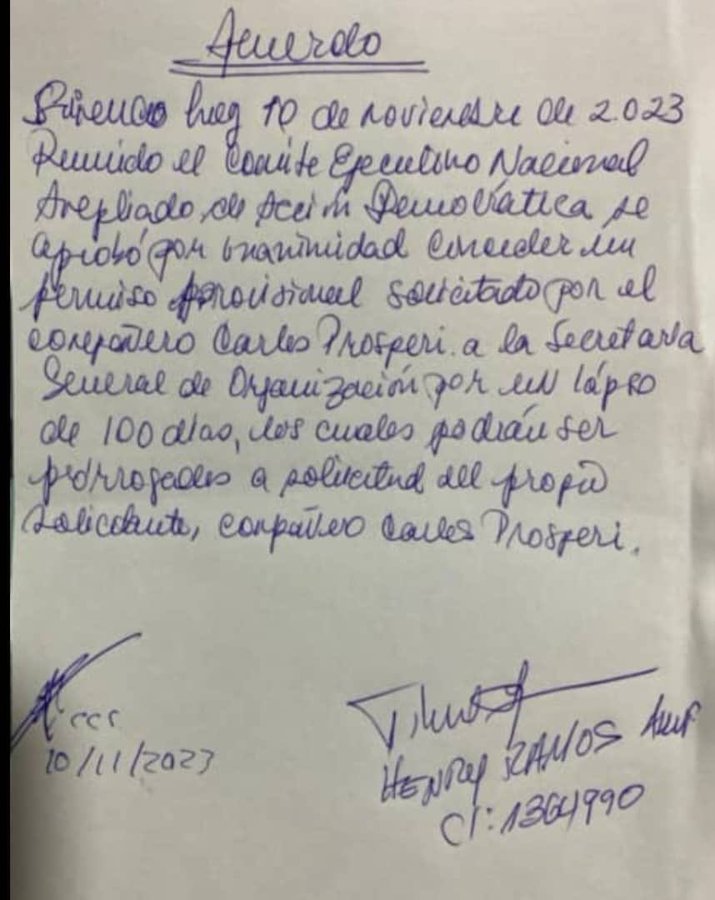 Acuerdo
hoy 10 de noviembre de 2.023
Reunido el Comité Ejecutivo Nacional
Ampliado de Acción Democrática se
aprobó por unanimidad conceder un
permiso provisional solicitado por el
compañero Carlos Prosperi a la Secretaría
General de Organización por un lapso
de 100 días, los cuales podrán ser
prorrogados a solicitud del propio
solicitante, compañero Carlos Prosperi.
ccs
10/11/2023
HENRY RAMOS
CI: 1364990